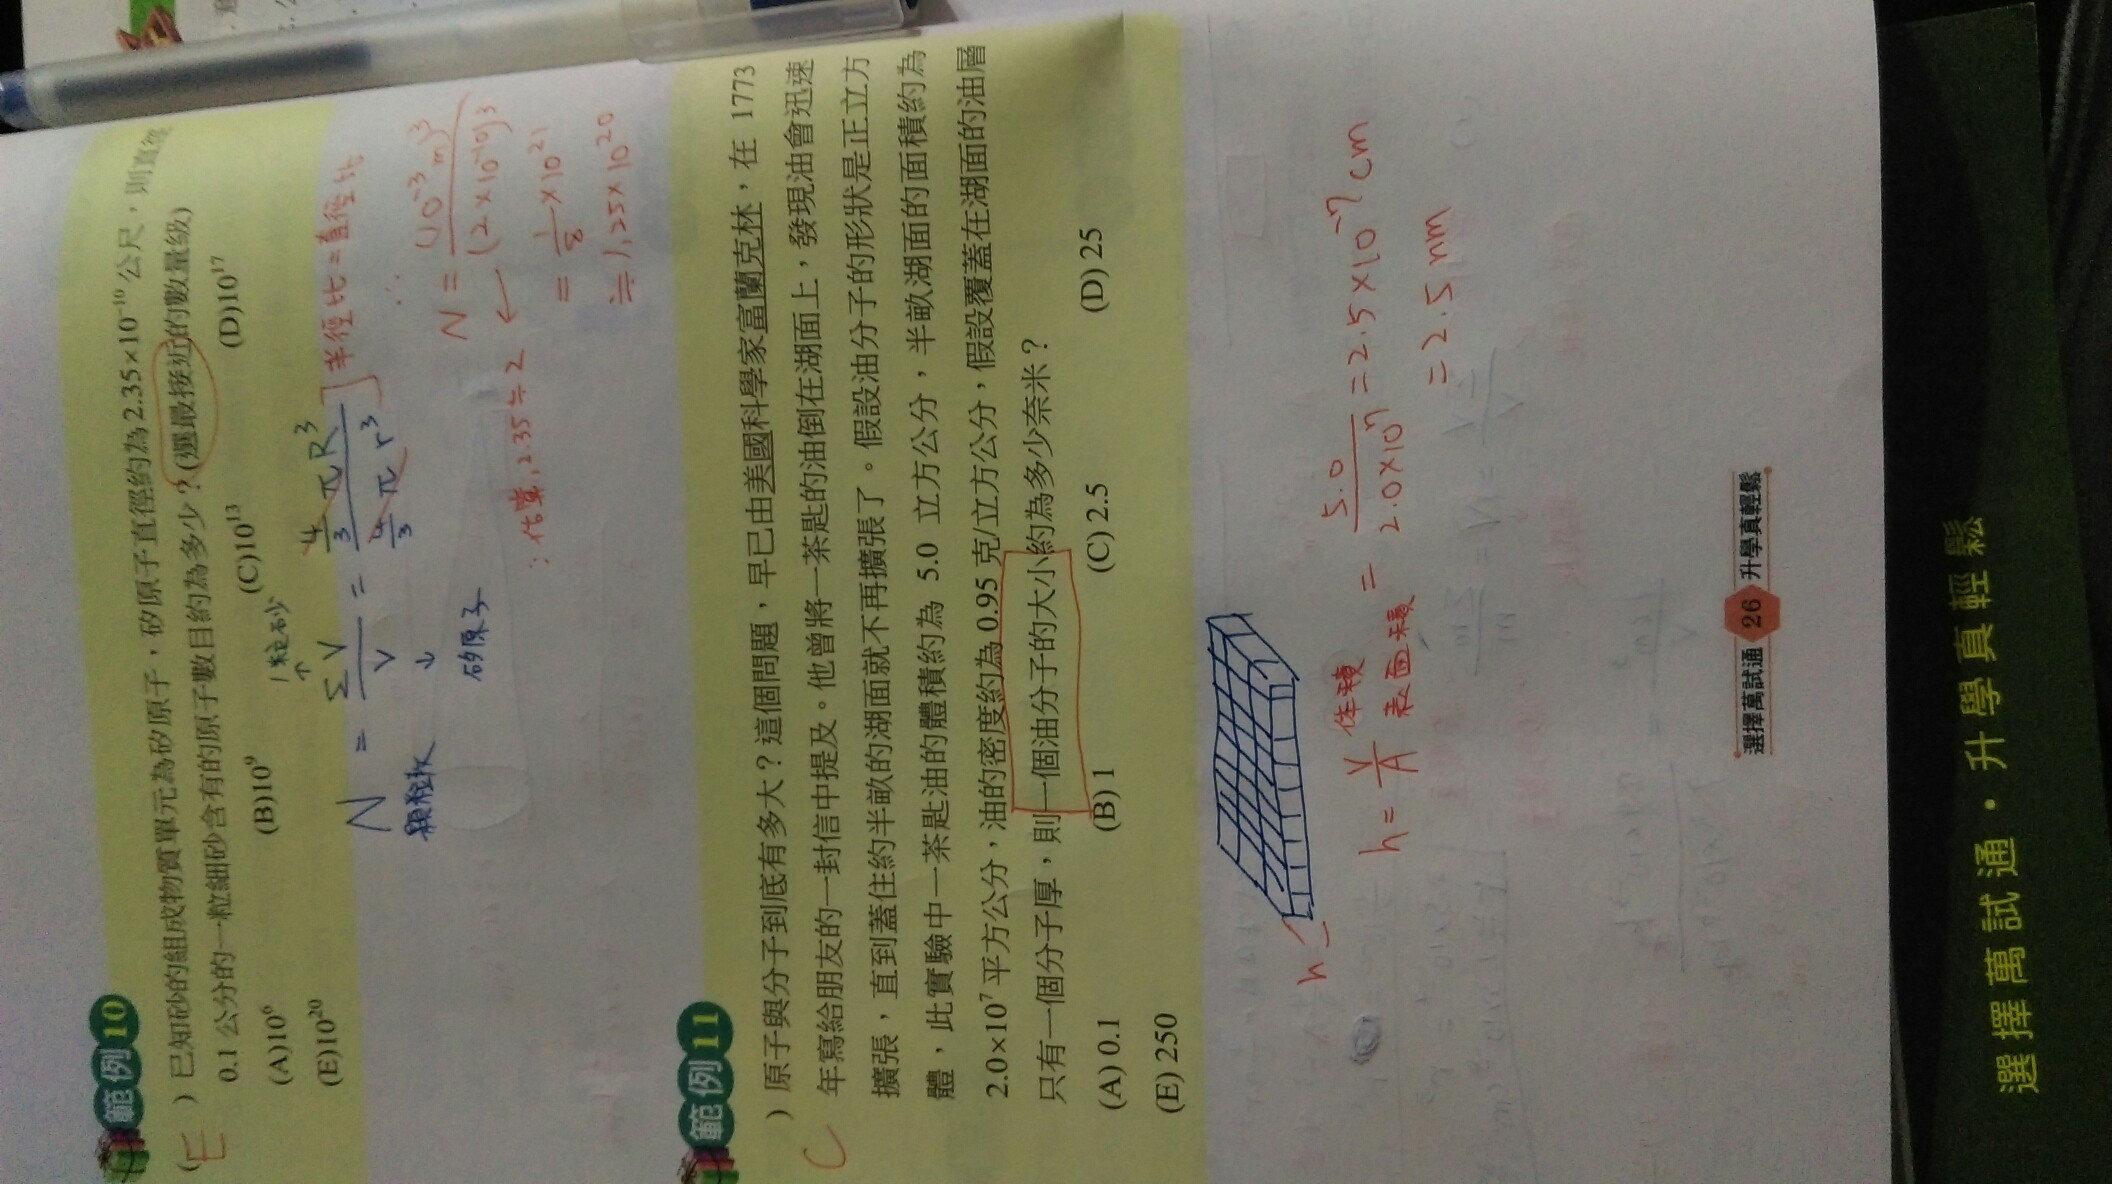 範例10
(E) 已知砂的組成物質單元為矽原子，矽原子直徑約為2.35×10⁻¹⁰公尺，則直徑
0.1 公分的一粒細砂含有的原子數目約為多少？(選最接近的數量級)
(A)10⁶ (B)10⁹ (C)10¹³ (D)10¹⁷
(E)10²⁰
1粒石少
N = ΣV/V = (4/3 πR³)/(4/3 πr³)
半徑比=直徑比
顆粒數
矽原子
∴
N = (10⁻³ m)³/(2×10⁻¹⁰)³
: 估算, 2.35≒2
= 1/8 ×10²¹
≒1.25×10²⁰
範例11
C ) 原子與分子到底有多大？這個問題，早已由美國科學家富蘭克林，在 1773
年寫給朋友的一封信中提及。他曾將一茶匙的油倒在湖面上，發現油會迅速
擴張，直到蓋住約半畝的湖面就不再擴張了。假設油分子的形狀是正立方
體，此實驗中一茶匙油的體積約為 5.0 立方公分，半畝湖面的面積約為
2.0×10⁷ 平方公分，油的密度約為 0.95 克/立方公分，假設覆蓋在湖面的油層
只有一個分子厚，則一個油分子的大小約為多少奈米？
(A) 0.1 (B) 1 (C) 2.5 (D) 25
(E) 250
h
h = V/A 体積/表面積 = 5.0/2.0×10⁷ = 2.5×10⁻⁷ cm
= 2.5 nm
選擇萬試通 26 升學真輕鬆
選擇萬試通・升學真輕鬆